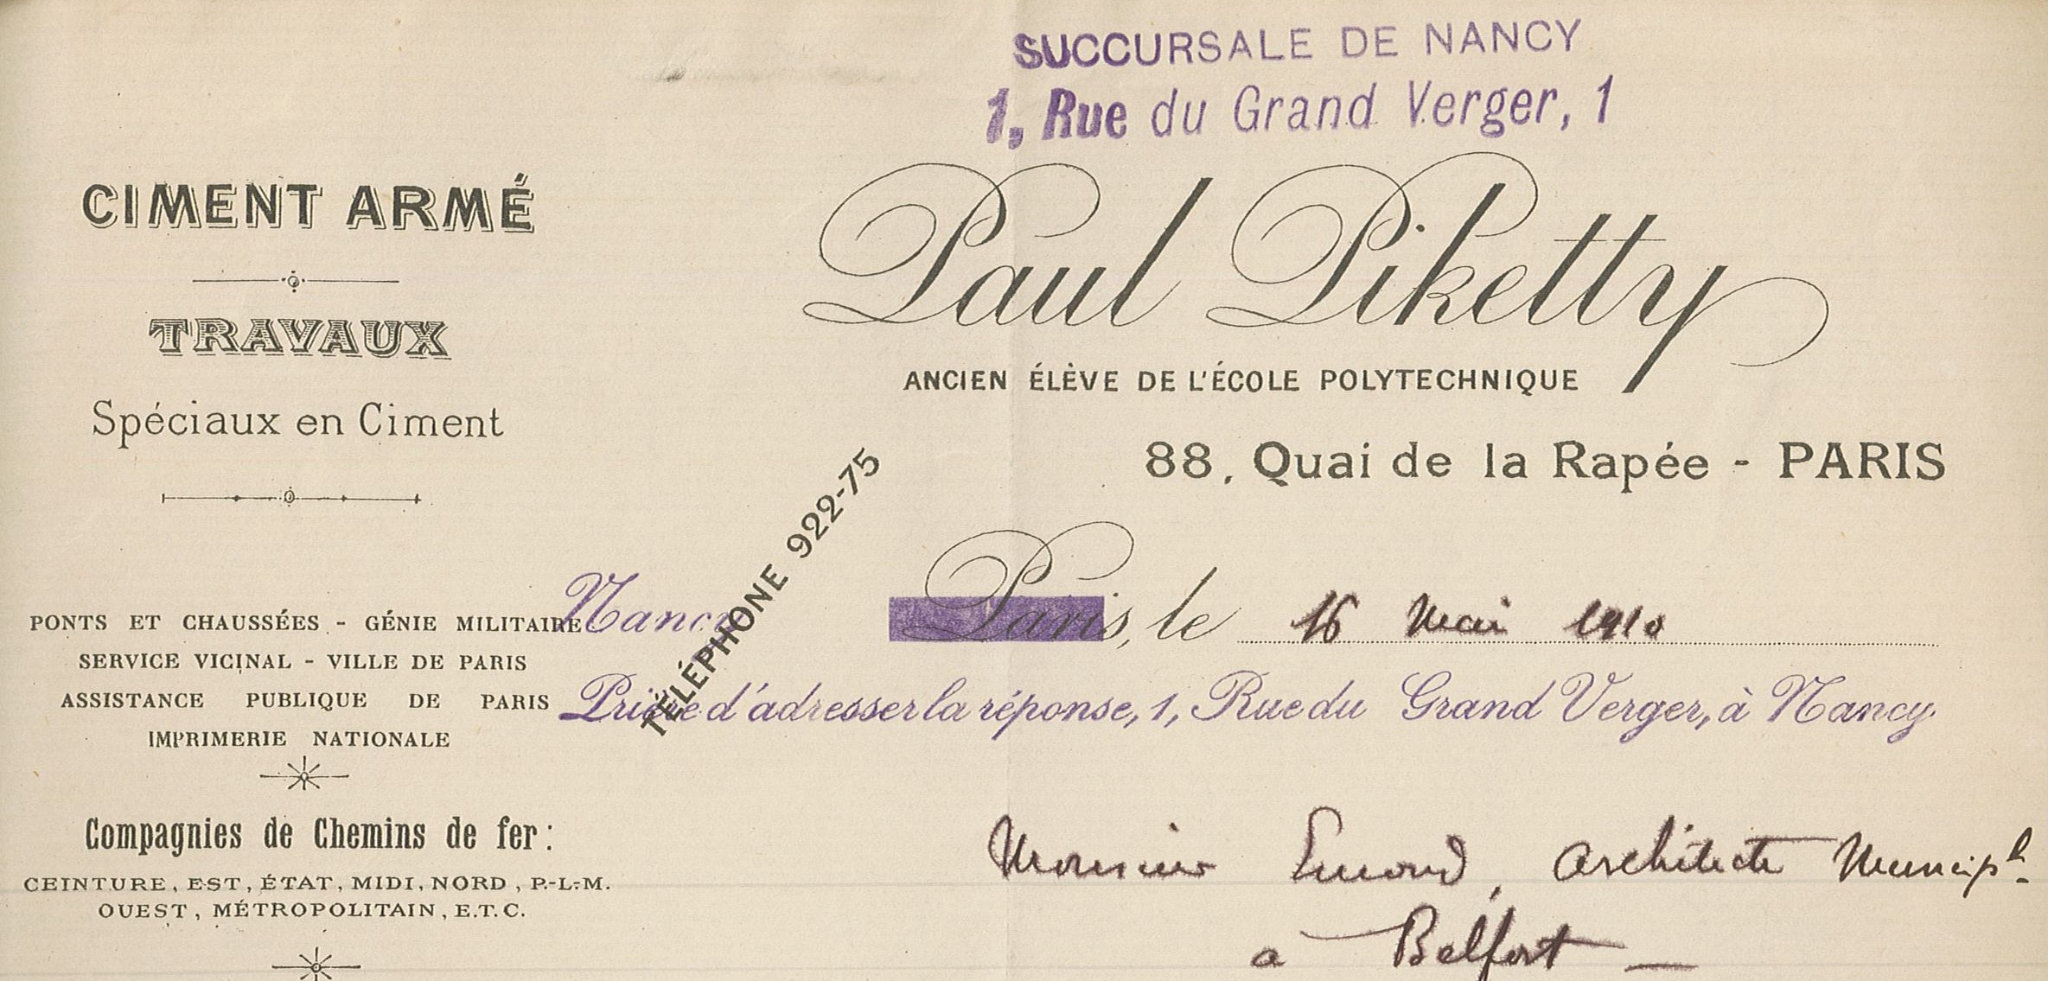 SUCCURSALE DE NANCY
1, Rue du Grand Verger, 1
CIMENT ARMÉ
TRAVAUX
Spéciaux en Ciment
Paul Piketty
ANCIEN ÉLÈVE DE L'ÉCOLE POLYTECHNIQUE
88, Quai de la Rapée - PARIS
TÉLÉPHONE 922-75
PONTS ET CHAUSSÉES - GÉNIE MILITAIRE
SERVICE VICINAL - VILLE DE PARIS
ASSISTANCE PUBLIQUE DE PARIS
IMPRIMERIE NATIONALE
Compagnies de Chemins de fer :
CEINTURE, EST, ÉTAT, MIDI, NORD, P.-L.-M.
OUEST, MÉTROPOLITAIN, E.T.C.
Nancy
Paris, le 16 Mai 1910
Prière d'adresser la réponse, 1, Rue du Grand Verger, à Nancy.
Monsieur architecte Municipl.
a Belfort —